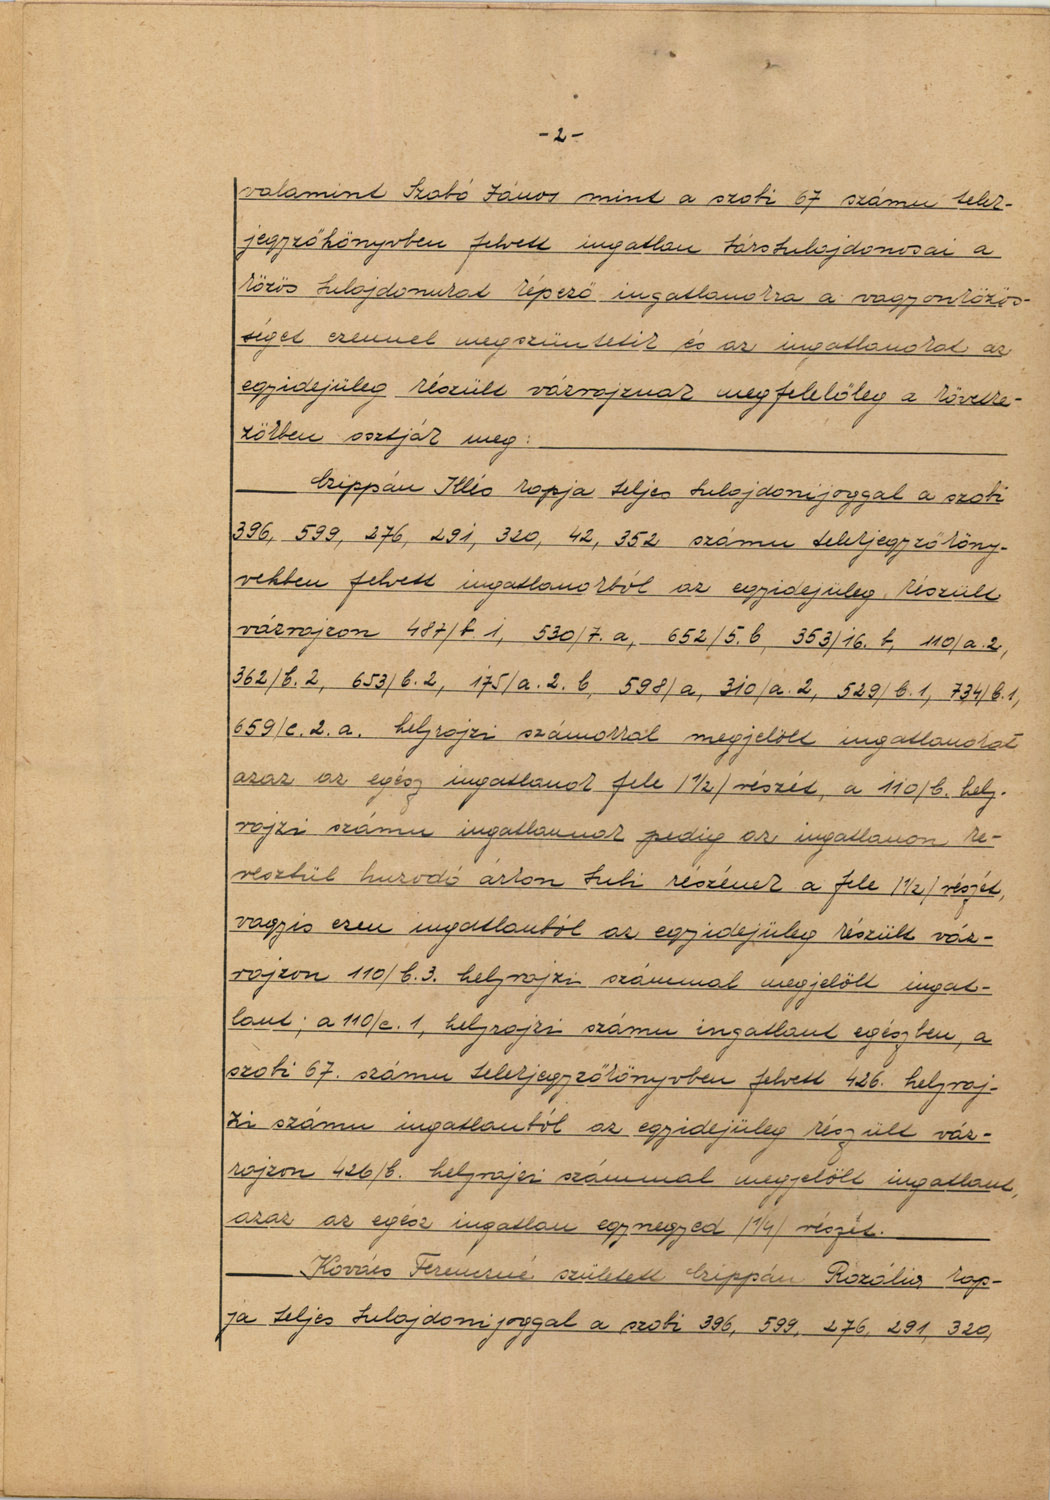 -2-
valamint Szabó János mint a szobi 67 számu telek-
jegyzőkönyvben felvett ingatlan társtulajdonosai a
közös tulajdonukat képező ingatlanokra a vagyonközös-
séget ezennel megszüntetik és az ingatlanokat az
egyidejüleg készült vázrajznak megfelelőleg a követke-
zőkben osztják meg:
Czippán Illés kapja teljes tulajdonijoggal a szobi
396, 599, 276, 291, 320, 42, 352 számu telekjegyzőköny-
vekben felvett ingatlanokból az egyidejüleg készült
vázrajzon 487/b.1, 530/7.a, 652/5.b, 353/16.b, 110/a.2,
362/b.2, 653/b.2, 175/a.2.b, 598/a, 310/a.2, 529/b.1, 734/b.1,
659/c.2.a. helyrajzi számokkal megjelölt ingatlanokat
azaz az egész ingatlanok fele /1/2/ részét, a 110/b. hely-
rajzi számu ingatlannak pedig az ingatlanon ke-
resztül huzodó árkon tuli részének a fele /1/2/ részét,
vagyis ezen ingatlanból az egyidejüleg készült váz-
rajzon 110/b.3. helyrajzi számmal megjelölt ingat-
lant; a 110/c.1, helyrajzi számu ingatlant egészben, a
szobi 67. számu telekjegyzőkönyvben felvett 426. helyraj-
zi számu ingatlanból az egyidejüleg készült váz-
rajzon 426/b. helyrajzi számmal megjelölt ingatlant,
azaz az egész ingatlan egynegyed /1/4/ részét.
Kovács Ferencné született Czippán Rozália kap-
ja teljes tulajdonijoggal a szobi 396, 599, 276, 291, 320,